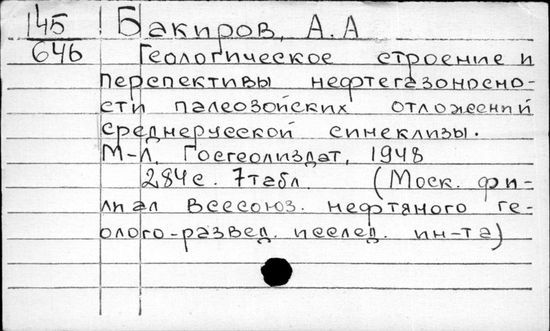 145 Бакиров, А. А
646 Геологическое строение и
перспективы нефтегазоносно-
сти палеозойских отложений
среднерусской синеклизы.
М-Л, Госгеолиздат, 1948
284с. 7табл. (Моск. фи-
лиал Всесоюз. нефтяного ге-
олого-развед. исслед. ин-та)